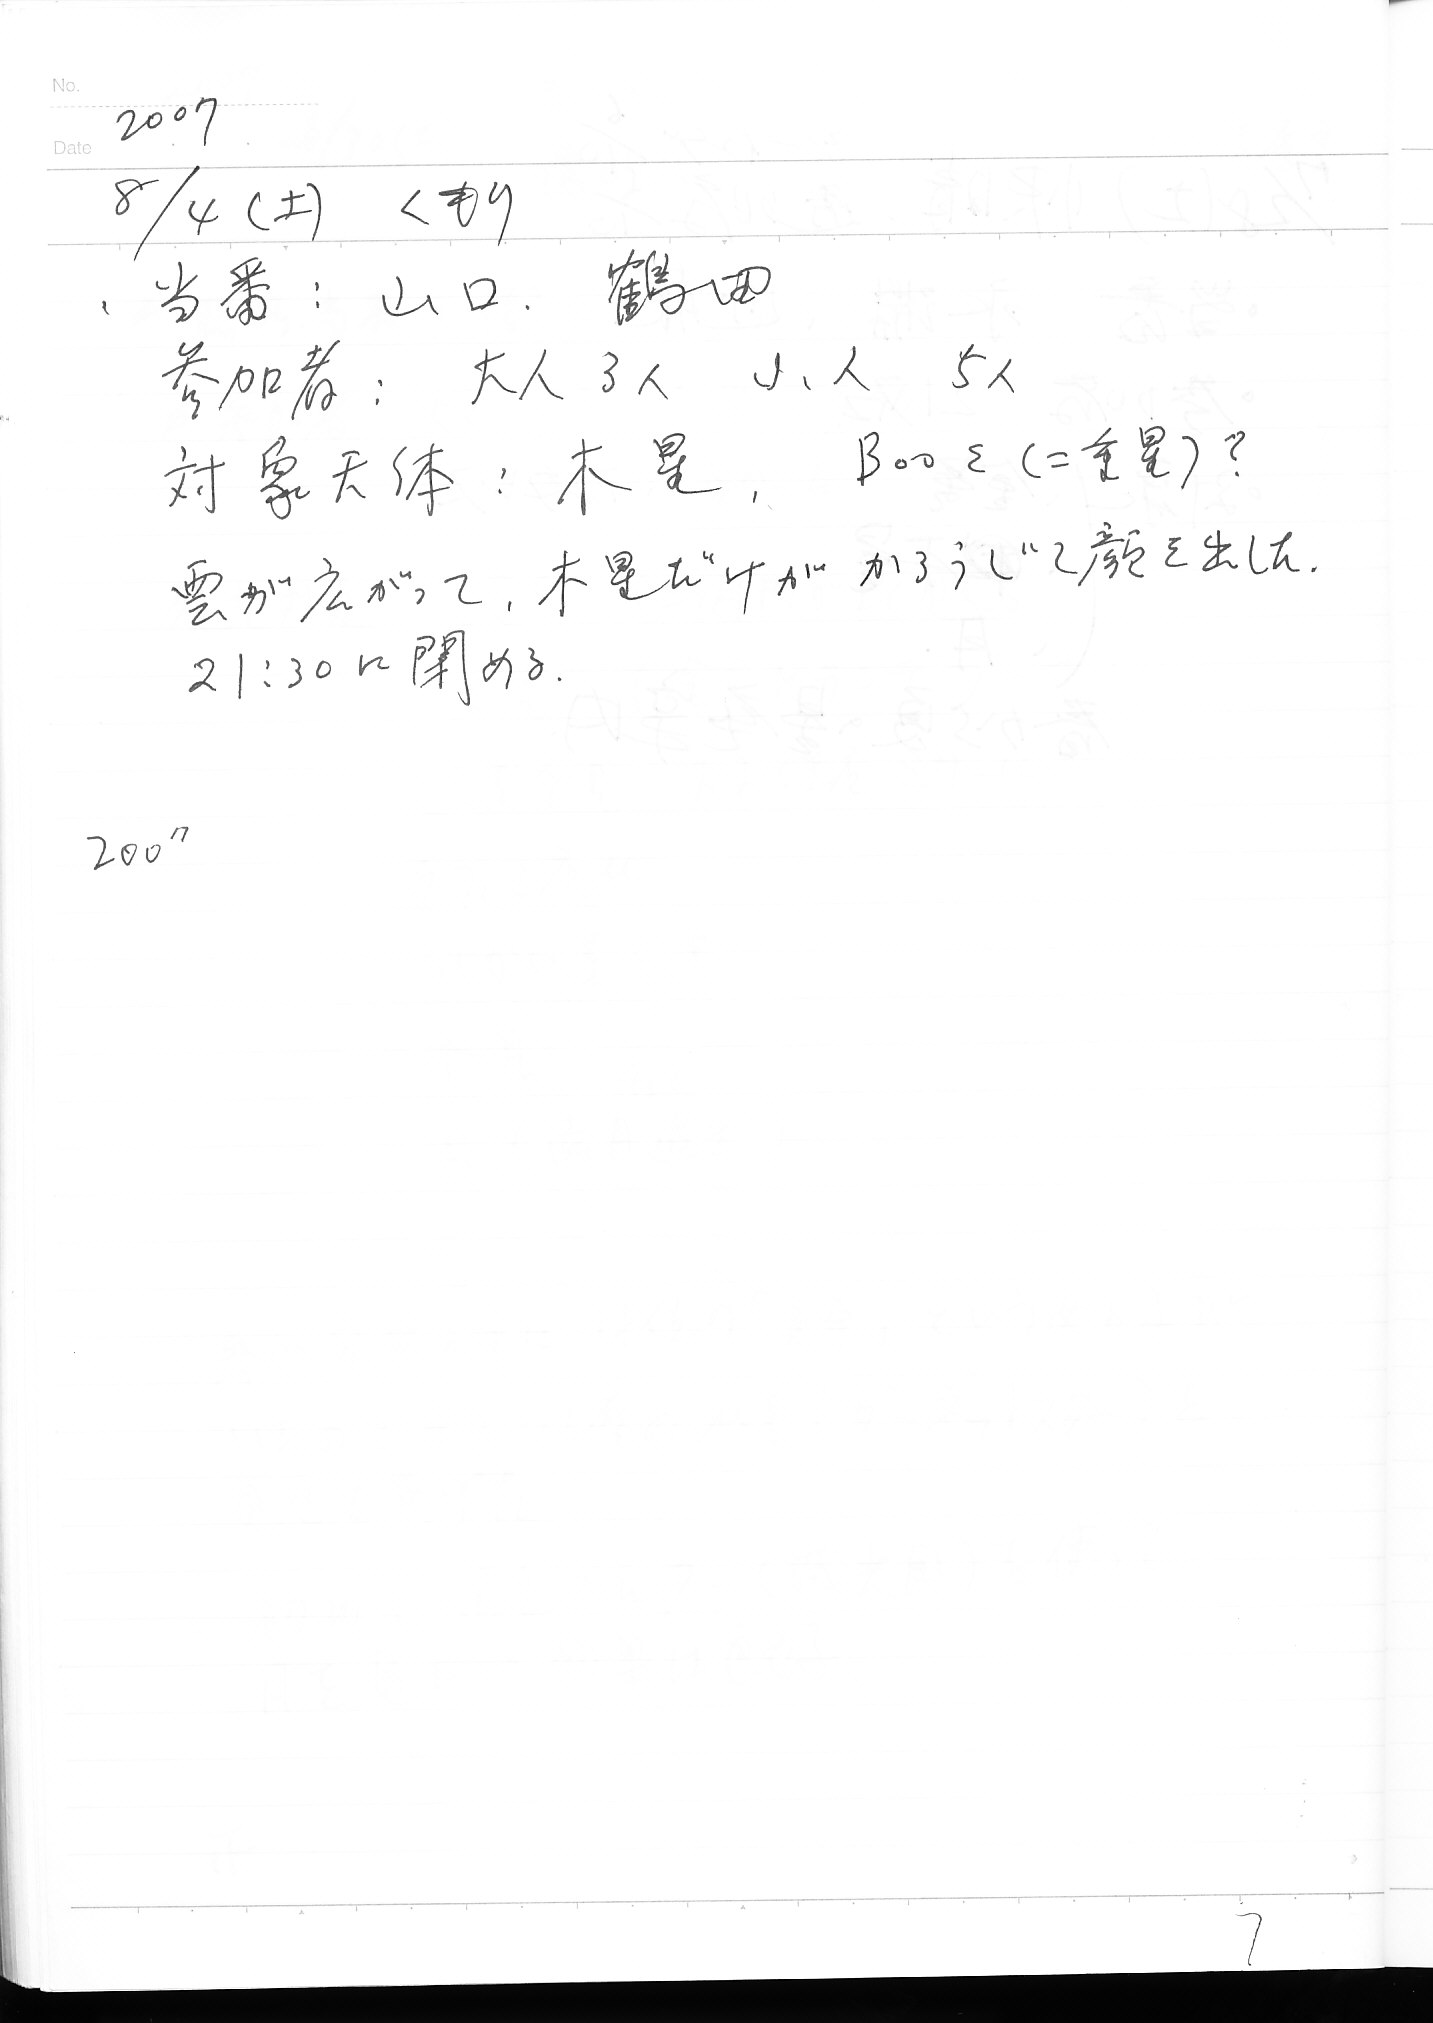 No.
2007
Date
8/4(土) くもり
、当番: 山口. 鶴田
参加者: 大人 3人 小人 5人
対象天体: 木星, Boo ε (二重星)?
雲が広がって, 木星だけが かろうじて顔を出した.
21:30に閉める.
2007
7